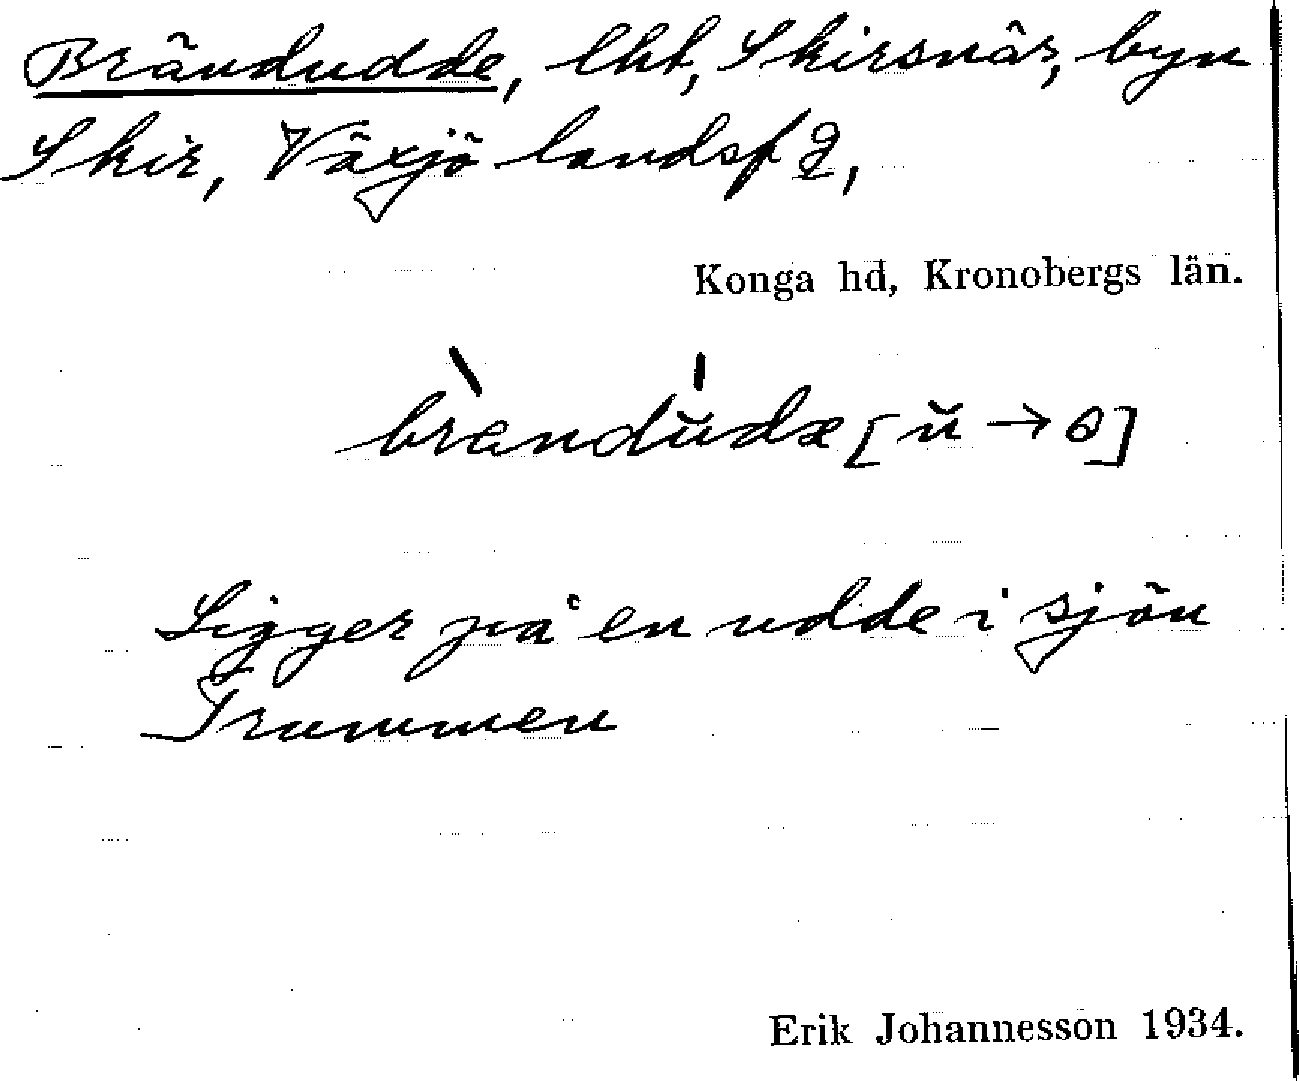 Brändudde, lht, Skirsnäs, byn
Skir, Växjö landsf 2,
Konga hd, Kronobergs län.
brandŭdæ [ŭ → ɵ]
Ligger på en udde i sjön
Trummen
Erik Johannesson 1934.